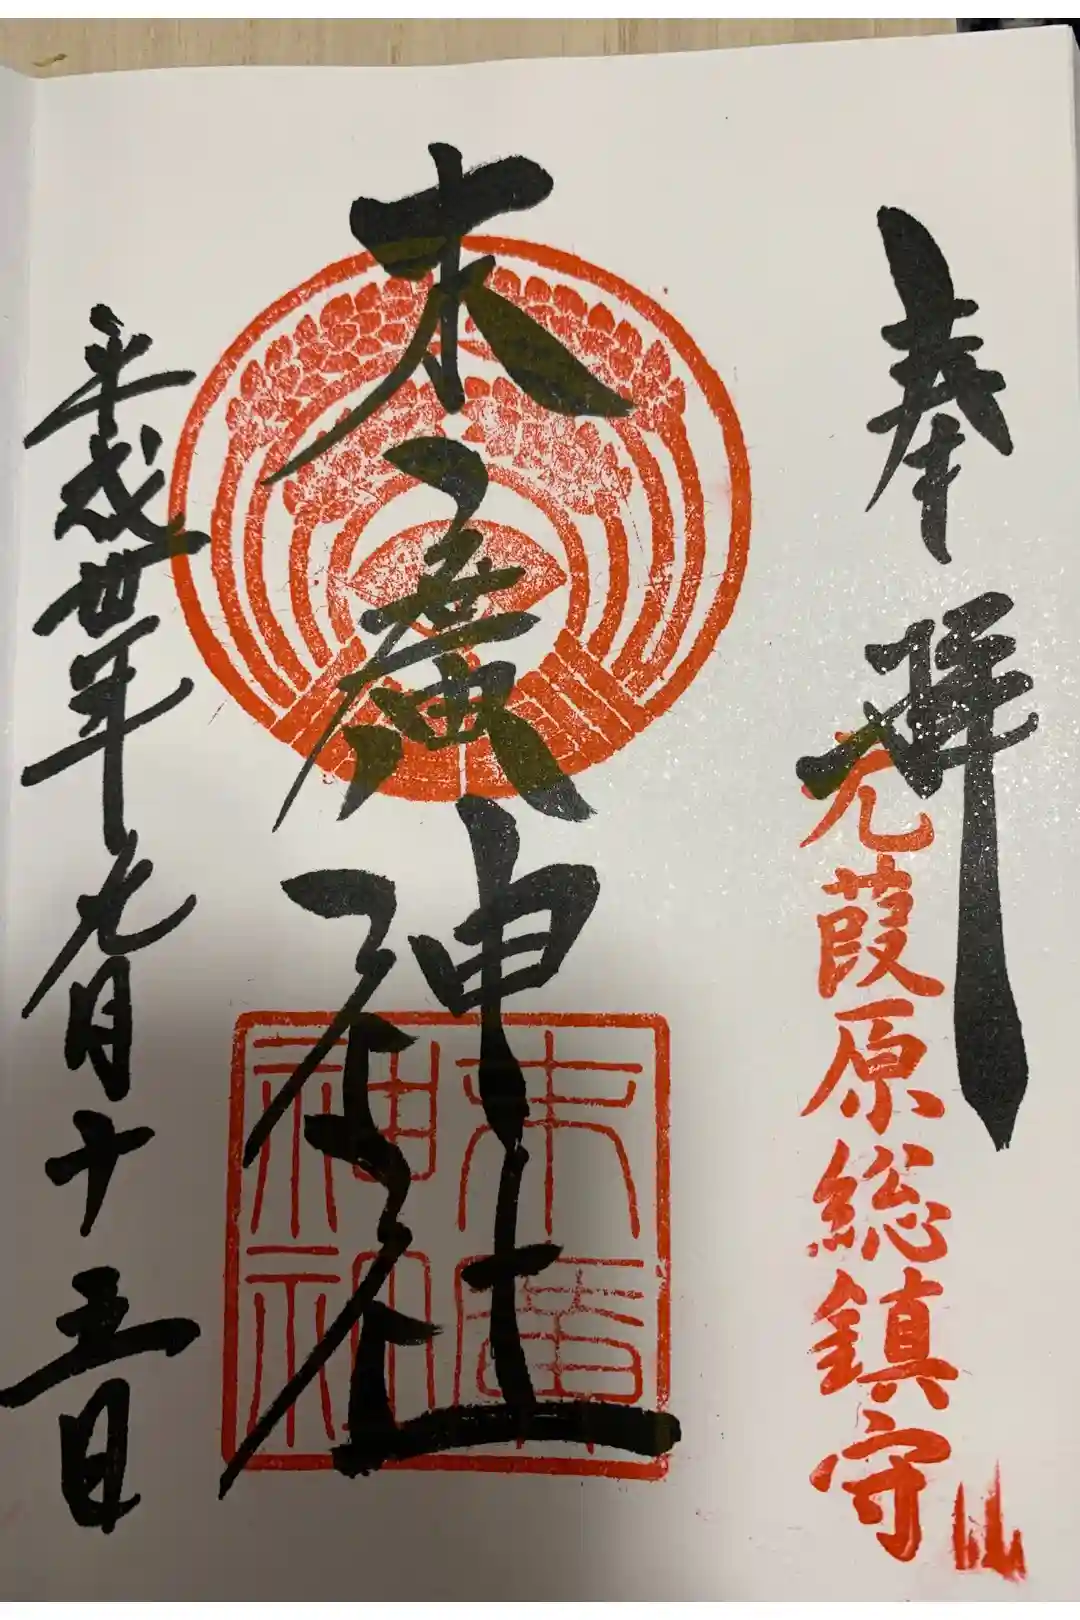 奉拝
元葭原総鎮守
末廣神社
末廣神社
平成卅年九月十五日